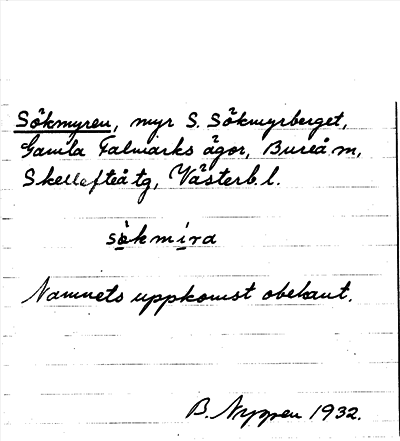 Sökmyren, myr S. Sökmyrberget,
Gamla Falmarks ägor, Bureå m,
Skellefteå tg, Västerb. l.
sökmira
Namnets uppkomst obekant.
B. Nyppen 1932.